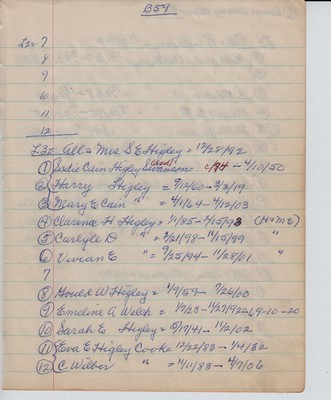 B59
L2= 7
8
9
10
11
12
L3= All = Mrs S E Higley = 12/28/92
① Sadie Cain Higley Swanson = c/74 - 4/10/50
② Harry Higley = 7/12/60 - 3/2/19
③ Mary E Cain " = 4/1/64 - 4/12/03
④ Clarence H Higley = 1/1/85 - 4/15/93 (H+ME)
⑤ Carlyle D " = 2/21/98 - 11/15/99 "
⑥ Vivian E " = 9/25/94 - 11/28/01 "
7
⑧ Gould W Higley = 1/9/59 - 7/26/00
⑨ Emeline A Welch = 1/17/23 - 11/27/92 = 69-10-20
⑩ Sarah E Higley = 5/17/41 - 11/2/02
⑪ Eva E Higley Cooke 12/22/83 - 1/4/32
⑫ C Wilber " = 11/11/83 - 4/7/06